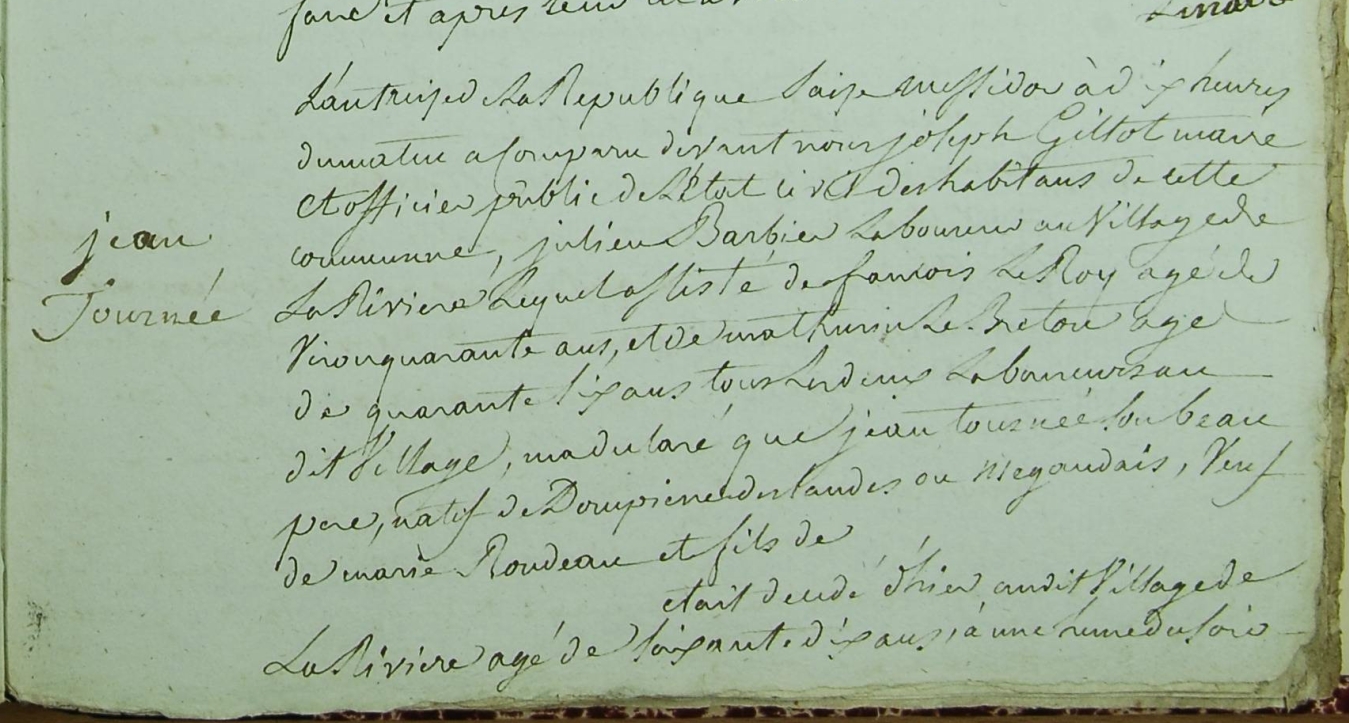 sane et apres
L'an treize de La Republique Saize Messidor à dix heures
du matin a Comparu devant nous joseph Gillot maire
et officier public de L'état civil des habitans de cette
commune, julien Barbier Laboureur au Village de
La Riviere Lequel assisté de francois Le Roy agé de
Viron quarante ans, et de mathurin Le Breton agé
de quarante six ans tous Les deux Laboureurs au
dit Village, m'a declaré que jean tournée son beau
pere, natif de Dompierre des landes ou megaudais, Veuf
de marie Rondeau et fils de
etait decedé d'hier audit Village de
La Riviere agé de soixante dix ans, à une heure du soir
jean
Tournée